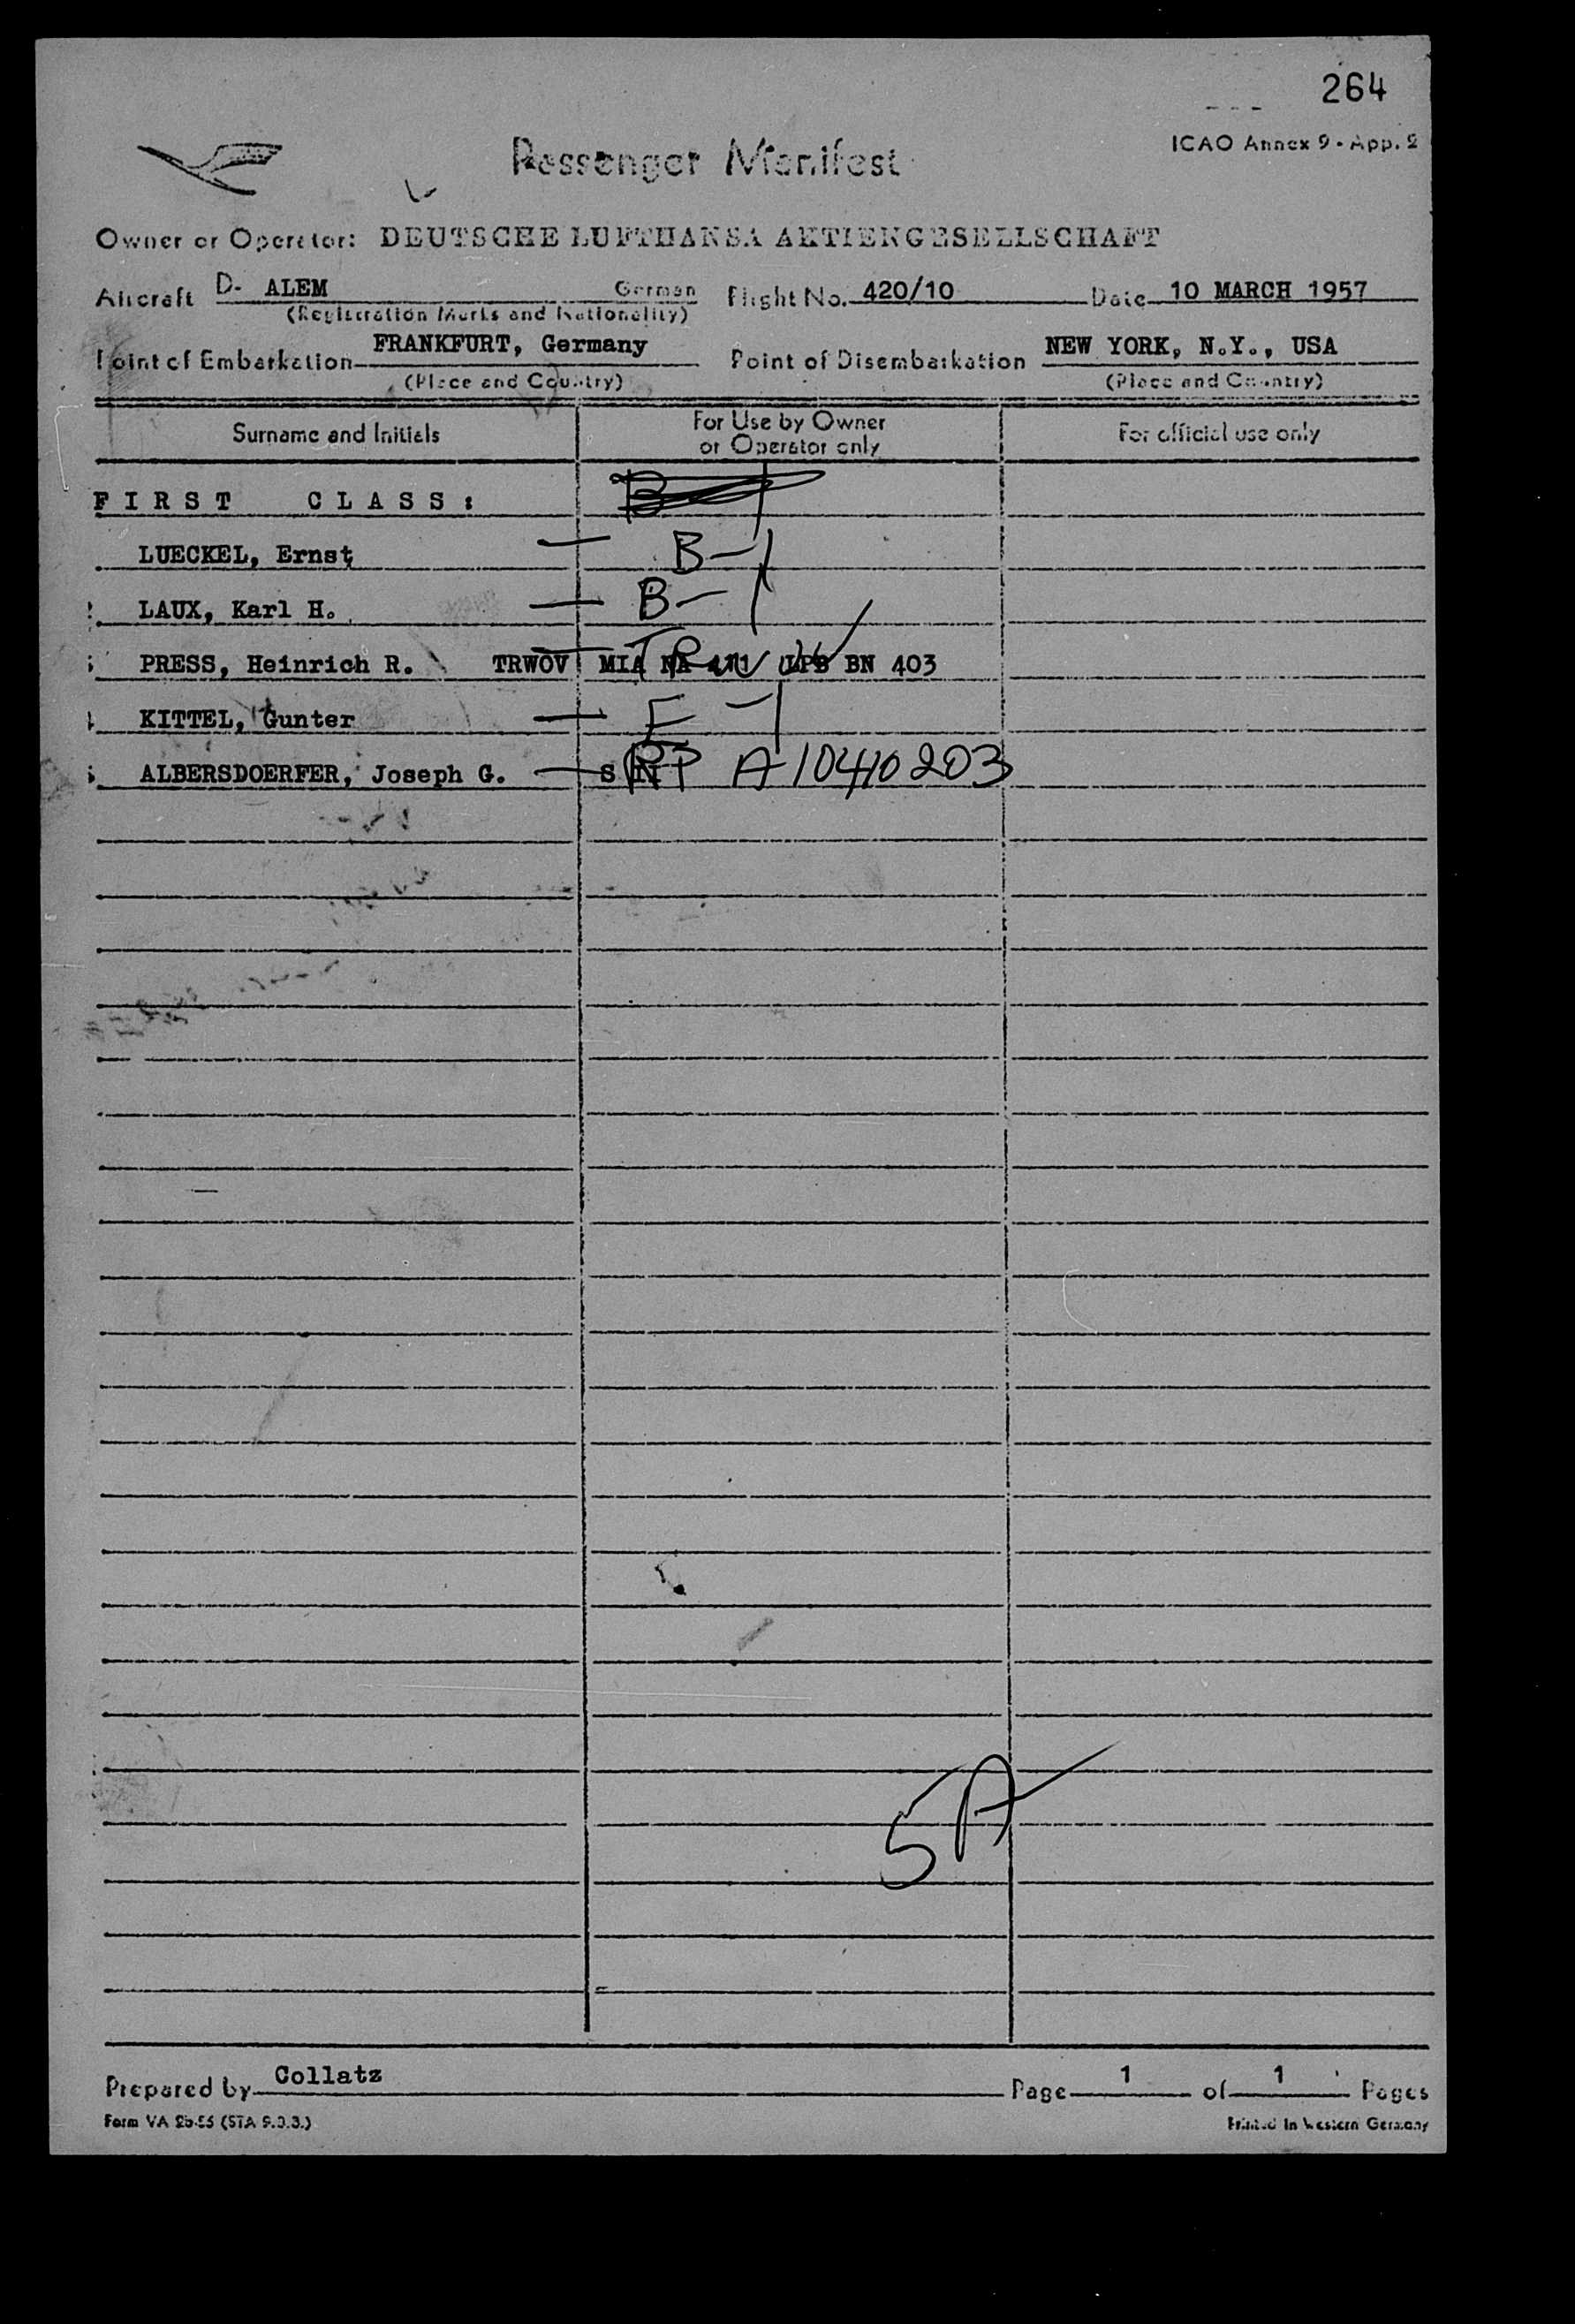 264
ICAO Annex 9 - App. 2
Passenger Manifest
Owner or Operator: DEUTSCHE LUFTHANSA AKTIENGESELLSCHAFT
Aircraft D- ALEM German Flight No. 420/10 Date 10 MARCH 1957
(Registration Marks and Nationality)
Point of Embarkation FRANKFURT, Germany Point of Disembarkation NEW YORK, N.Y., USA
(Place and Country) (Place and Country)
Surname and Initials For Use by Owner or Operator only For official use only
FIRST CLASS:
LUECKEL, Ernst — B-1
LAUX, Karl H. — B-1
PRESS, Heinrich R. TRWOV MIA NA LPB BN 403
KITTEL, Gunter — E-1
ALBERSDOERFER, Joseph G. — RP A10410203
5A
Prepared by Collatz Page 1 of 1 Pages
Form VA Printed in Western Germany